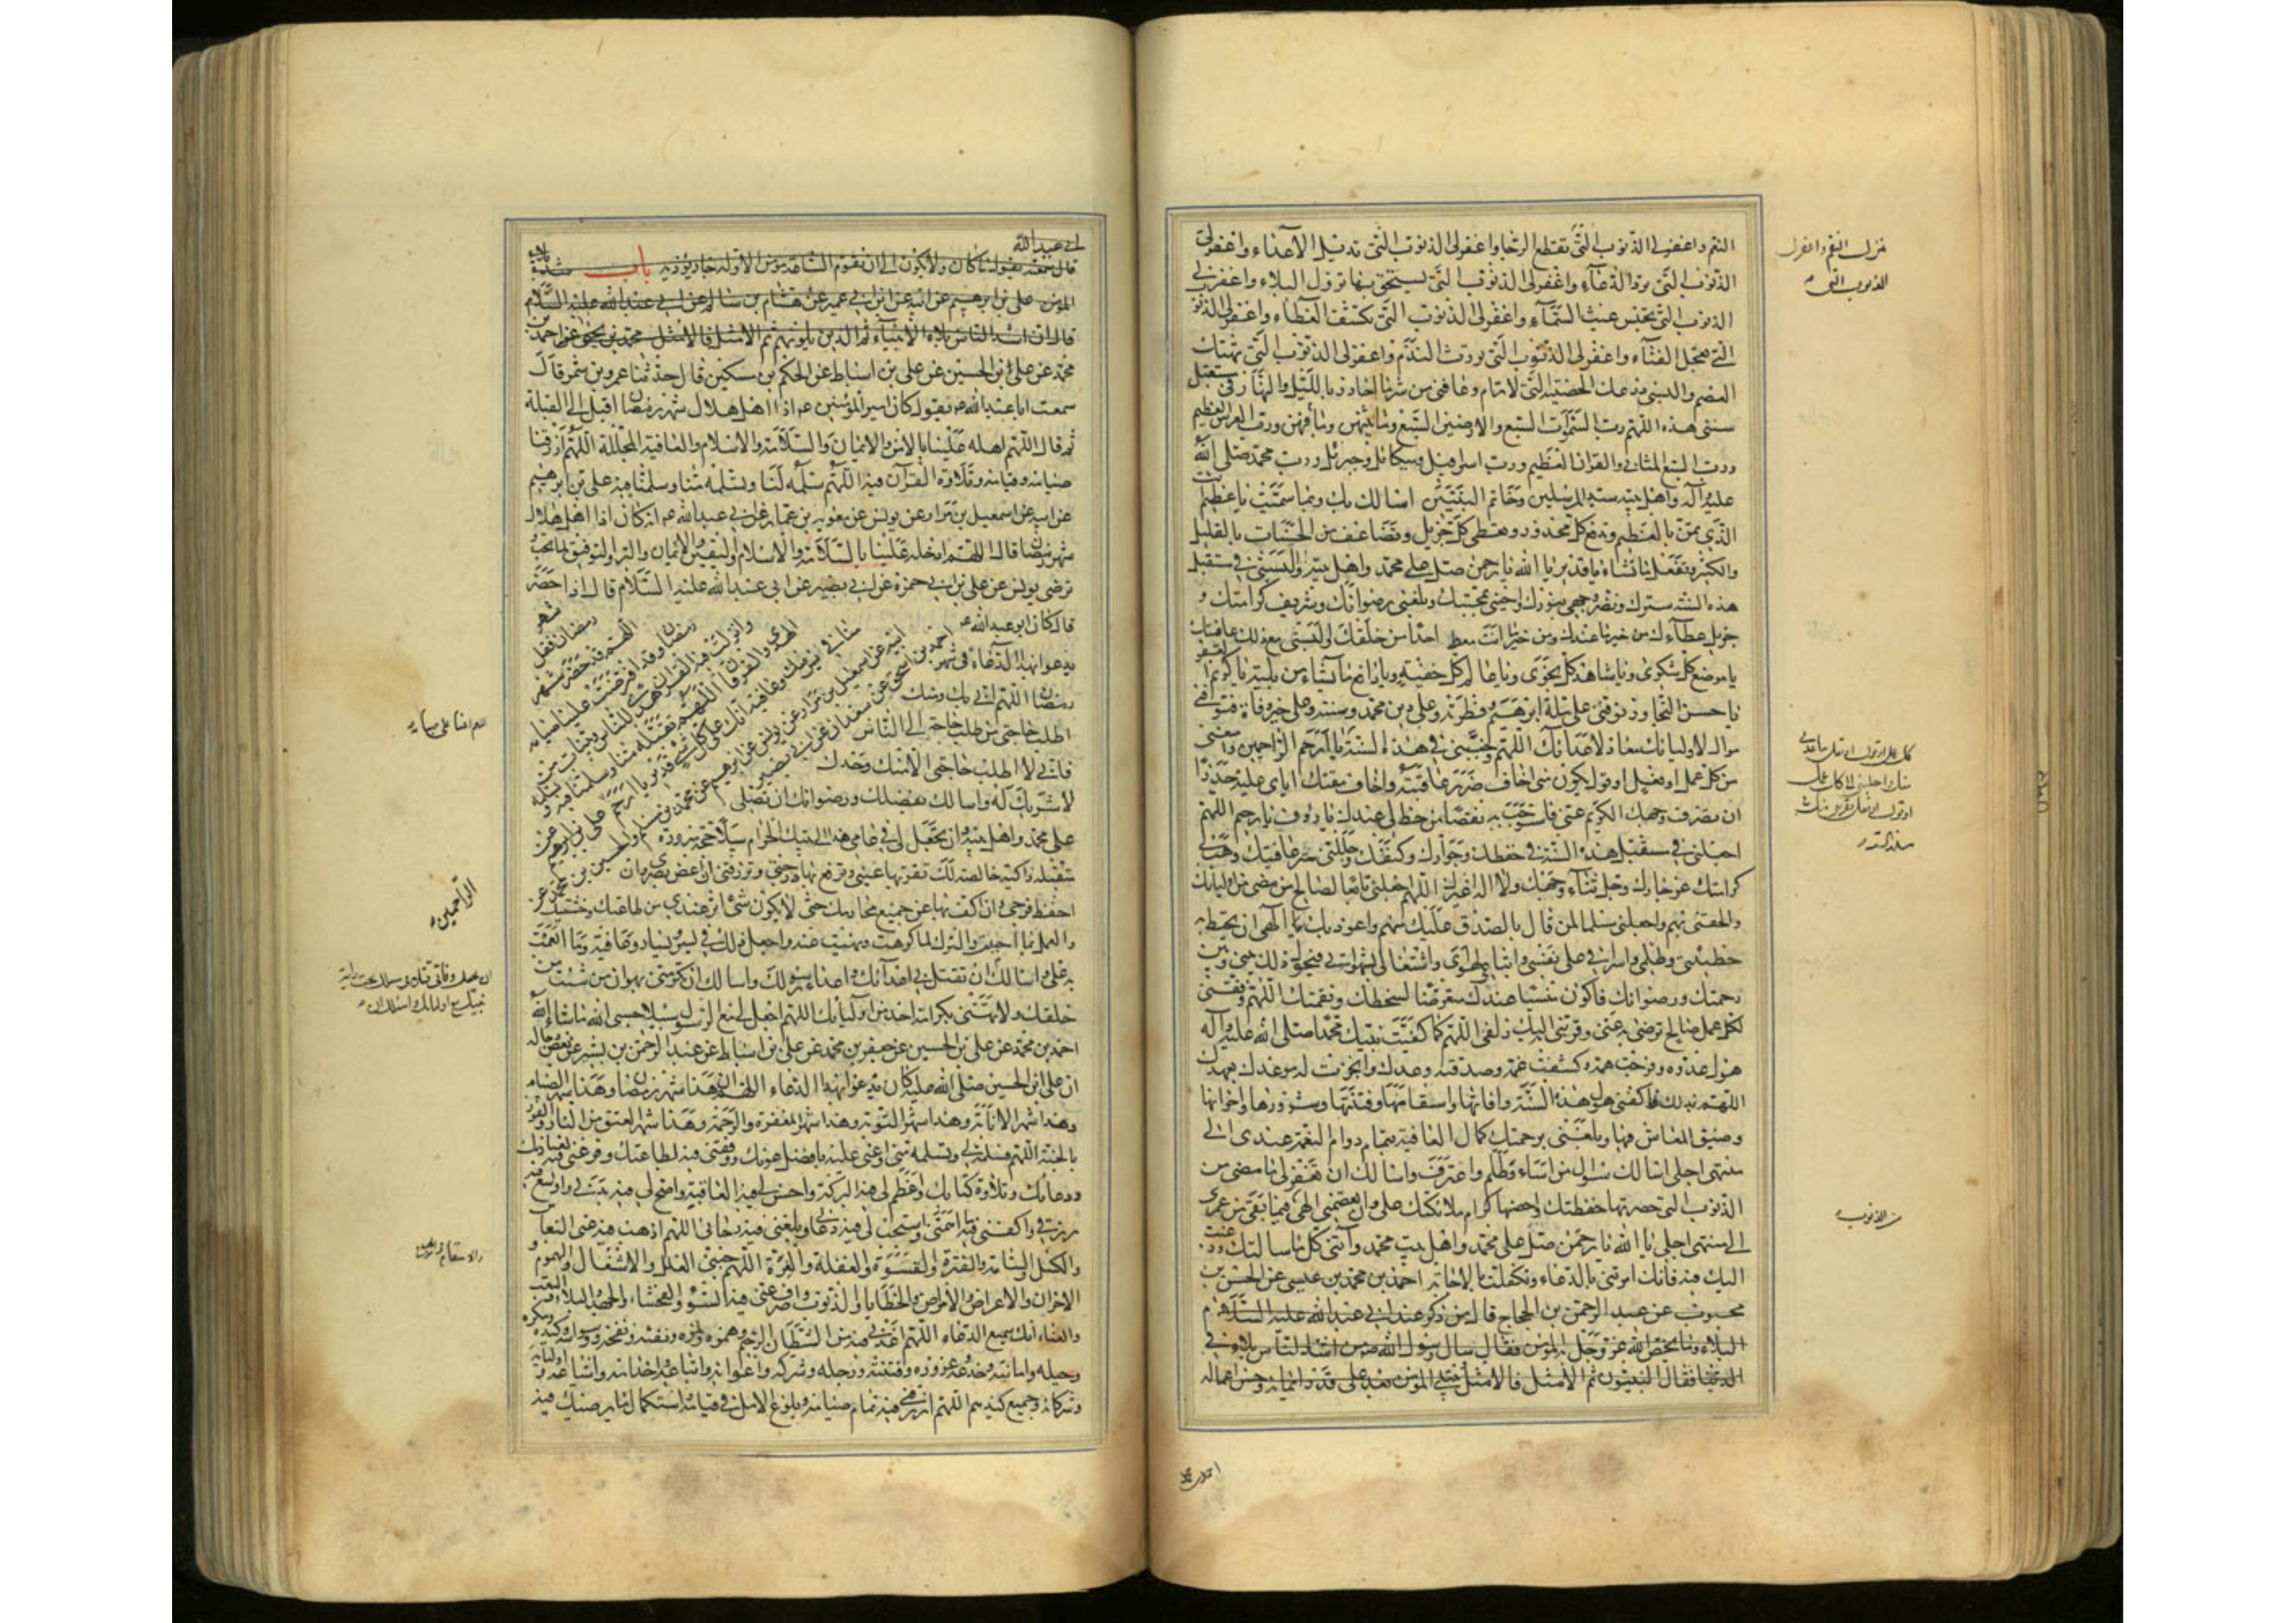 النقم واغفر لي الذنوب التي تقطع الرجا واغفر لي الذنوب التي تديل الأعداء واغفر لي
الذنوب التي ترد الدعاء واغفر لي الذنوب التي يستحق بها نزول البلاء واغفر لي
الذنوب التي تحبس غيث السماء واغفر لي الذنوب التي تكشف الغطاء واغفر لي الذنوب
التي تعجل الفناء واغفر لي الذنوب التي تورث الندم واغفر لي الذنوب التي تهتك
العصم والبسني درعك الحصينة التي لا ترام وعافني من شر ما احاذر بالليل والنهار في مستقبل
سنتي هذه اللهم رب السموات السبع والارضين السبع وما فيهن وما بينهن ورب العرش العظيم
ورب السبع المثاني والقرآن العظيم ورب اسرافيل وميكائيل وجبرئيل ورب محمد صلى الله
عليه وآله واهل بيته سيد المرسلين وخاتم النبيين اسالك بك وبما سميت يا عظيم
الذي يمن بالعظيم وتدفع كل محذور وتعطي كل جزيل وتضاعف من الحسنات بالقليل
والكثير وتفعل ما تشاء يا قدير يا الله يا رحمن صل على محمد واهل بيته والبسني في مستقبل
هذه السنة سترك ونضر وجهي بنورك واحيني بمحبتك وبلغني رضوانك وشريف كرامتك و
جزيل عطاءك من خير ما عندك ومن خير ما انت معط احدا من خلقك والبسني مع ذلك عافيتك
يا موضع كل شكوى ويا شاهد كل نجوى ويا عالم كل خفية ويا دافع ما تشاء من بلية يا كريم العفو
يا حسن التجاوز توفني على ملة ابرهيم وفطرته وعلى دين محمد وسنته وعلى خير وفاة فتوفني
مواليا لاوليائك معاديا لاعدائك اللهم جنبني في هذه السنة يا ارحم الراحمين وامنعني
من كل عمل او فعل او قول يكون مني اخاف ضرر عاقبته واخاف مقتك اياي عليه حذرا
ان تصرف وجهك الكريم عني فاستوجب به نقصا من حظ لي عندك يا رؤوف يا رحيم اللهم
اجعلني في مستقبل هذه السنة في حفظك وجوارك وكنفك وجللني ستر عافيتك وهب لي
كرامتك عز جارك وجل ثناءك ولا اله غيرك اللهم اجعلني تابعا لصالح من مضى من اوليائك
والحقني بهم واجعلني مسلما لمن قال بالصدق عليك منهم واعوذ بك يا الهي ان يحيط به
خطيئتي وظلمي واسرافي على نفسي واتباعي لهواي واشتغالي بشهواتي فيحول ذلك بيني وبين
رحمتك ورضوانك فاكون منسيا عندك متعرضا لسخطك ونقمتك اللهم وفقني
لكل عمل صالح ترضى به عني وقربني اليك زلفى اللهم كما كفيت نبيك محمدا صلى الله عليه وآله
هول عدوه وفرجت همه وكشفت غمه وصدقته وعدك وانجزت له موعدك بعهدك
اللهم بذلك فاكفني هول هذه السنة وافاتها واسقامها وفتنتها وشرورها واحزانها
وضيق المعاش فيها وبلغني برحمتك كمال العافية بتمام دوام النعمة عندي الى
منتهى اجلي اسالك سؤال من اساء وظلم واعترف واسالك ان تغفر لي ما مضى من
الذنوب التي حصرتها حفظتك واحصتها كرام ملائكتك علي وان تعصمني الهي فيما بقي من عمري
الى منتهى اجلي يا الله يا رحمن صل على محمد واهل بيت محمد وآتني كل ما سالتك ورغبت
اليك فيه فانك امرتني بالدعاء وتكفلت بالاجابة احمد بن محمد بن عيسى عن الحسن بن
محبوب عن عبد الرحمن بن الحجاج قال من ذكر عند ابي عبد الله عليه السلام
البلاء وما يخص الله عز وجل به المؤمن فقال سال رسول الله من اشد الناس بلاء في
الدنيا فقال النبيون ثم الامثل فالامثل يبتلى المؤمن بعد على قدر ايمانه وحسن اعماله
تنزل النقم واغفر لي
الذنوب التي
من الذنوب
احمد بن محمد
ابي عبد الله
باب
المؤمن علي بن ابرهيم عن ابيه عن ابن ابي عمير عن هشام بن سالم عن ابي عبد الله عليه السلام
قال ان اشد الناس بلاء الانبياء ثم الذين يلونهم ثم الامثل فالامثل محمد بن يحيى عن احمد بن
محمد عن علي بن الحسين عن علي بن اسباط عن الحكم بن مسكين قال حدثنا عمرو بن شمر قال
سمعت ابا عبد الله يقول كان امير المؤمنين اذا اهل هلال شهر رمضان اقبل الى القبلة
ثم قال اللهم اهله علينا بالامن والايمان والسلامة والاسلام والعافية المجللة اللهم ارزقنا
صيامه وقيامه وتلاوة القرآن فيه اللهم سلمه لنا وتسلمه منا وسلمنا فيه علي بن ابرهيم
عن ابيه عن اسمعيل بن مرار عن يونس عن معوية بن عمار عن ابي عبد الله انه كان اذا اهل هلال
شهر رمضان قال اللهم ادخله علينا بالسلامة والاسلام واليقين والايمان والبر والتوفيق لما تحب و
ترضى يونس عن علي بن ابي حمزة عن ابي بصير عن ابي عبد الله عليه السلام قال اذا حضر
شهر رمضان فقل
اللهم قد حضر شهر
رمضان وقد افترضت علينا صيامه
وانزلت فيه القرآن هدى للناس وبينات من
الهدى والفرقان اللهم تقبله منا وسلمنا فيه و
قال كان ابو عبد الله
يدعو بهذا الدعاء في شهر
رمضان اللهم اني بك ومنك
اطلب حاجتي من طلب حاجة الى الناس
فاني لا اطلب حاجتي الا منك وحدك
لا شريك له واسالك بفضلك ورضوانك ان تصلي
على محمد واهل بيته وان تجعل لي في عامي هذا الى بيتك الحرام سبيلا حجة مبرورة
متقبلة زاكية خالصة لك تقر بها عيني وترفع بها درجتي وترزقني ان اغض بصري وان
احفظ فرجي وان اكف بها عن جميع محارمك حتى لا يكون شيء اثر عندي من طاعتك وخشيتك
والعمل بما احببت والترك لما كرهت ونهيت عنه واجعل ذلك في يسر ويسار وعافية وما انعمت
به علي واسالك ان تقتل بي اعداءك واعداء رسولك واسالك ان تكرمني بهوان من شئت من
خلقك ولا تهني بكرامة احد من اوليائك اللهم اجعل لي مع الرسول سبيلا حسبي الله ما شاء الله
احمد بن محمد عن علي بن الحسين عن جعفر بن محمد عن علي بن اسباط عن عبد الرحمن بن بشير عن بعض رجاله
ان علي بن الحسين صلى الله عليه كان يدعو بهذا الدعاء اللهم ان هذا شهر رمضان وهذا شهر الصيام
وهذا شهر الانابة وهذا شهر التوبة وهذا شهر المغفرة والرحمة وهذا شهر العتق من النار والفوز
بالجنة اللهم فسلمه لي وتسلمه مني واعني عليه بافضل عونك ووفقني فيه لطاعتك وفرغني فيه لعبادتك
ودعائك وتلاوة كتابك واعظم لي فيه البركة واحسن لي فيه العاقبة واصح لي فيه بدني واوسع فيه
رزقي واكفني فيه ما اهمني واستجب لي فيه دعائي وبلغني فيه رجائي اللهم اذهب فيه عني النعاس
والكسل والسامة والفترة والقسوة والغفلة والغرة اللهم جنبني العلل والاشغال والهموم و
الاحزان والاعراض والامراض والخطايا والذنوب واصرف عني فيه السوء والفحشاء والجهد والبلاء والتعب
والعناء انك سميع الدعاء اللهم اعذني فيه من الشيطان الرجيم وهمزه ولمزه ونفثه ونفخه ووسواسه وكيده ومكره
وحيله وامانيه وخدعه وغروره وفتنته ورجله وشركه واعوانه واتباعه واخدانه واشياعه واوليائه و
شركائه وجميع كيدهم اللهم ارزقني فيه تمام صيامه وبلوغ الامل في قيامه واستكمال ما يرضيك فيه
الراحمين